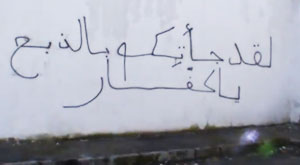 لقد جأتكم بالذبح
يا كفار